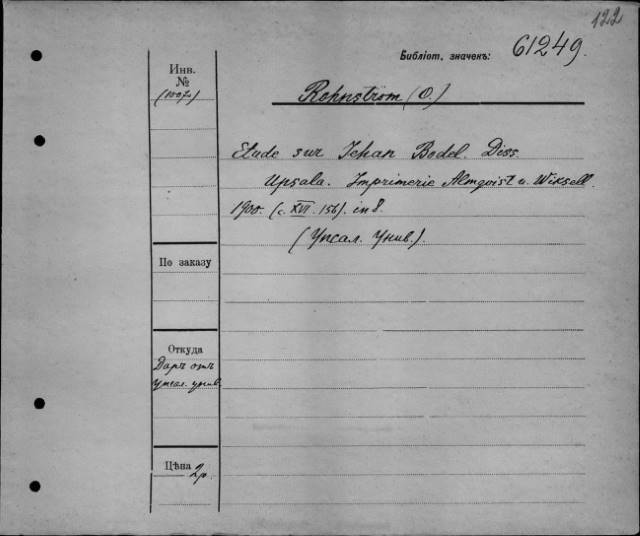 122
Библіот. значенъ: 61249.
Инв.
№
Rohnström (O.)
Etude sur Jehan Bodel. Diss.
Upsala. Imprimerie Almqvist u. Wiksell.
1900. (с. XVI. 156). in 8.
(Упсал. Унив.).
По заказу
Откуда
Даръ отъ
Упсал. унив.
Цѣна 2р.